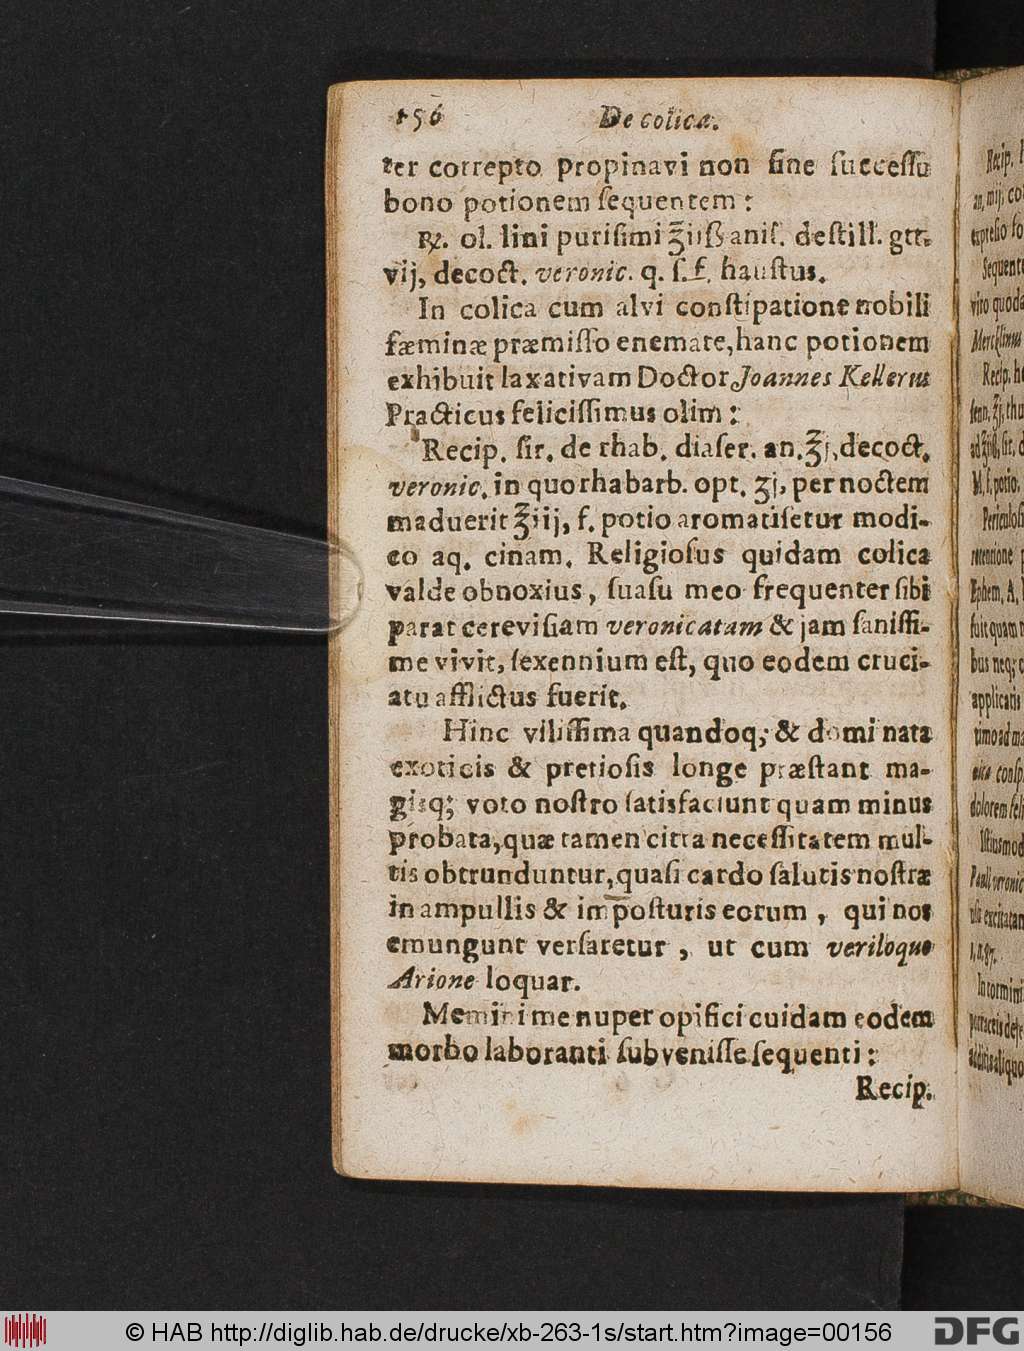 156 De colica.
ter correpto propinavi non ſine ſucceſſu
bono potionem ſequentem :
℞. ol. lini puriſimi ℥iiß aniſ. deſtill. gtt.
vij, decoct. veronic. q. ſ. f. hauſtus.
In colica cum alvi conſtipatione nobili
fæminæ præmiſſo enemate, hanc potionem
exhibuit laxativam Doctor Joannes Kellerus
Practicus feliciſſimus olim :
Recip. ſir. de rhab. diaſer. an. ℥j, decoct.
veronic. in quo rhabarb. opt. ʒj, per noctem
maduerit ℥iij, f. potio aromatiſetur modi-
co aq. cinam. Religioſus quidam colica
valde obnoxius, ſuaſu meo frequenter ſibi
parat cereviſiam veronicatam & jam ſaniſſi-
me vivit, ſexennium eſt, quo eodem cruci-
atu afflictus fuerit.
Hinc viliſſima quandoq; & domi nata
exoticis & pretioſis longe præſtant ma-
giſq; voto noſtro ſatisfaciunt quam minus
probata, quæ tamen citra neceſſitatem mul-
tis obtrunduntur, quaſi cardo ſalutis noſtræ
in ampullis & impoſturis eorum , qui nos
emungunt verſaretur , ut cum veriloquo
Arione loquar.
Memini me nuper opifici cuidam eodem
morbo laboranti ſubveniſſe ſequenti :
Recip.
Recip.
an. mij. co
expreſſio
Sequent
viro quod
Recip.
M. f. potio.
Ephem. A.
fuit quam
bus neq;
applicatis
timo ad ma
dolorem
Pauli veronic
In tormini
© HAB http://diglib.hab.de/drucke/xb-263-1s/start.htm?image=00156
DFG